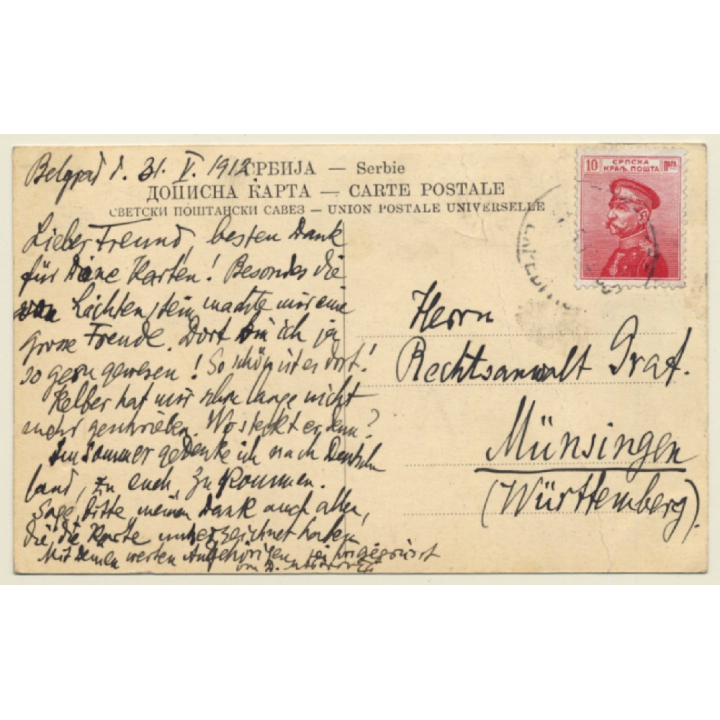 Belgrad d. 31. V. 1912.
СРБИЈА — Serbie
ДОПИСНА КАРТА — CARTE POSTALE
СВЕТСКИ ПОШТАНСКИ САВЕЗ — UNION POSTALE UNIVERSELLE
10 СРПСКА ПАРА
КРАЉ. ПОШТА
Lieber Freund, besten Dank
für Deine Karten! Besondes die
von Lichtenstein machte mir eine
grosse Freude. Dort bin ich ja
so gern gewesen! So schön ist es dort!
Kelber hat mir schon lange nicht
mehr geschrieben. Wo steckt er denn?
Im Sommer gedenke ich nach Deutsch
land, zu euch, zu kommen.
Sage, bitte meinen Dank auch allen,
die die Karte unterzeichnet haben.
Mit Deinen werten Angehörigen gegrüsst
von D.
Herrn
Rechtsanwalt Graf.
Münsingen
(Württemberg).